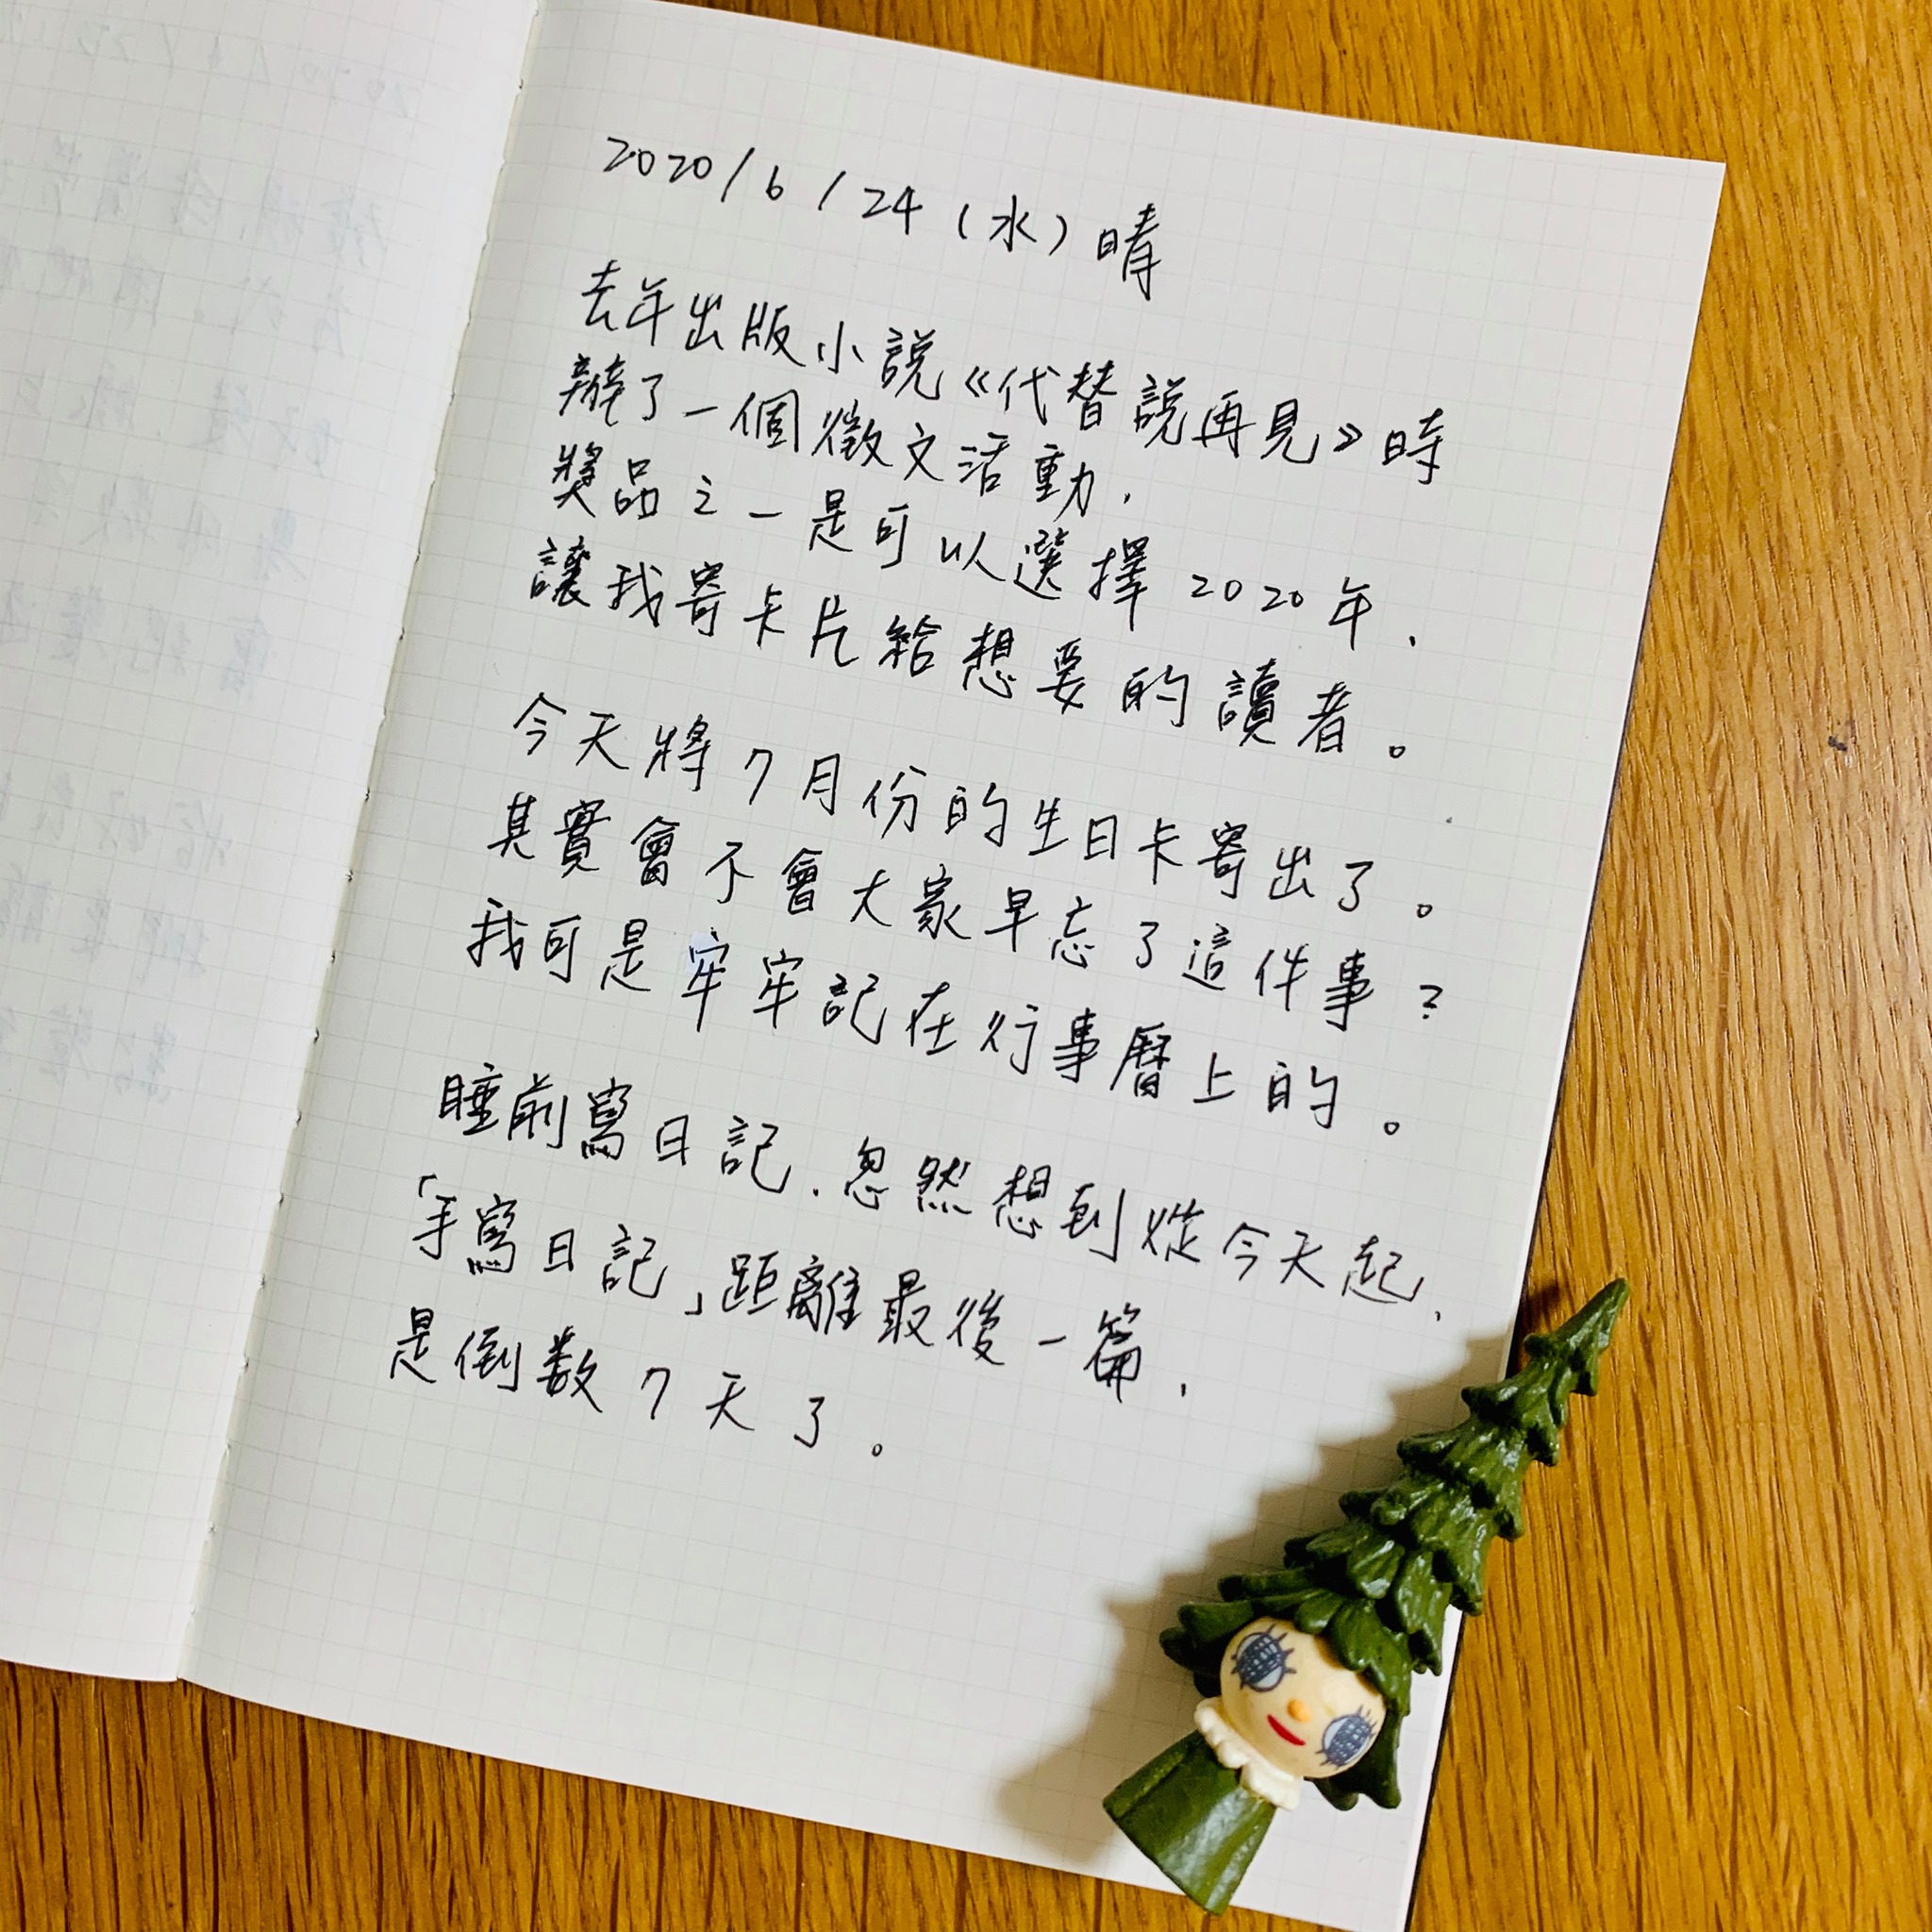 2020/6/24(水)晴
去年出版小說《代替說再見》時
辦了一個徵文活動，
獎品之一是可以選擇2020年，
讓我寄卡片給想要的讀者。
今天將7月份的生日卡寄出了。
其實會不會大家早忘了這件事？
我可是牢牢記在行事曆上的。
睡前寫日記，忽然想到從今天起，
「手寫日記」距離最後一篇，
是倒数7天了。